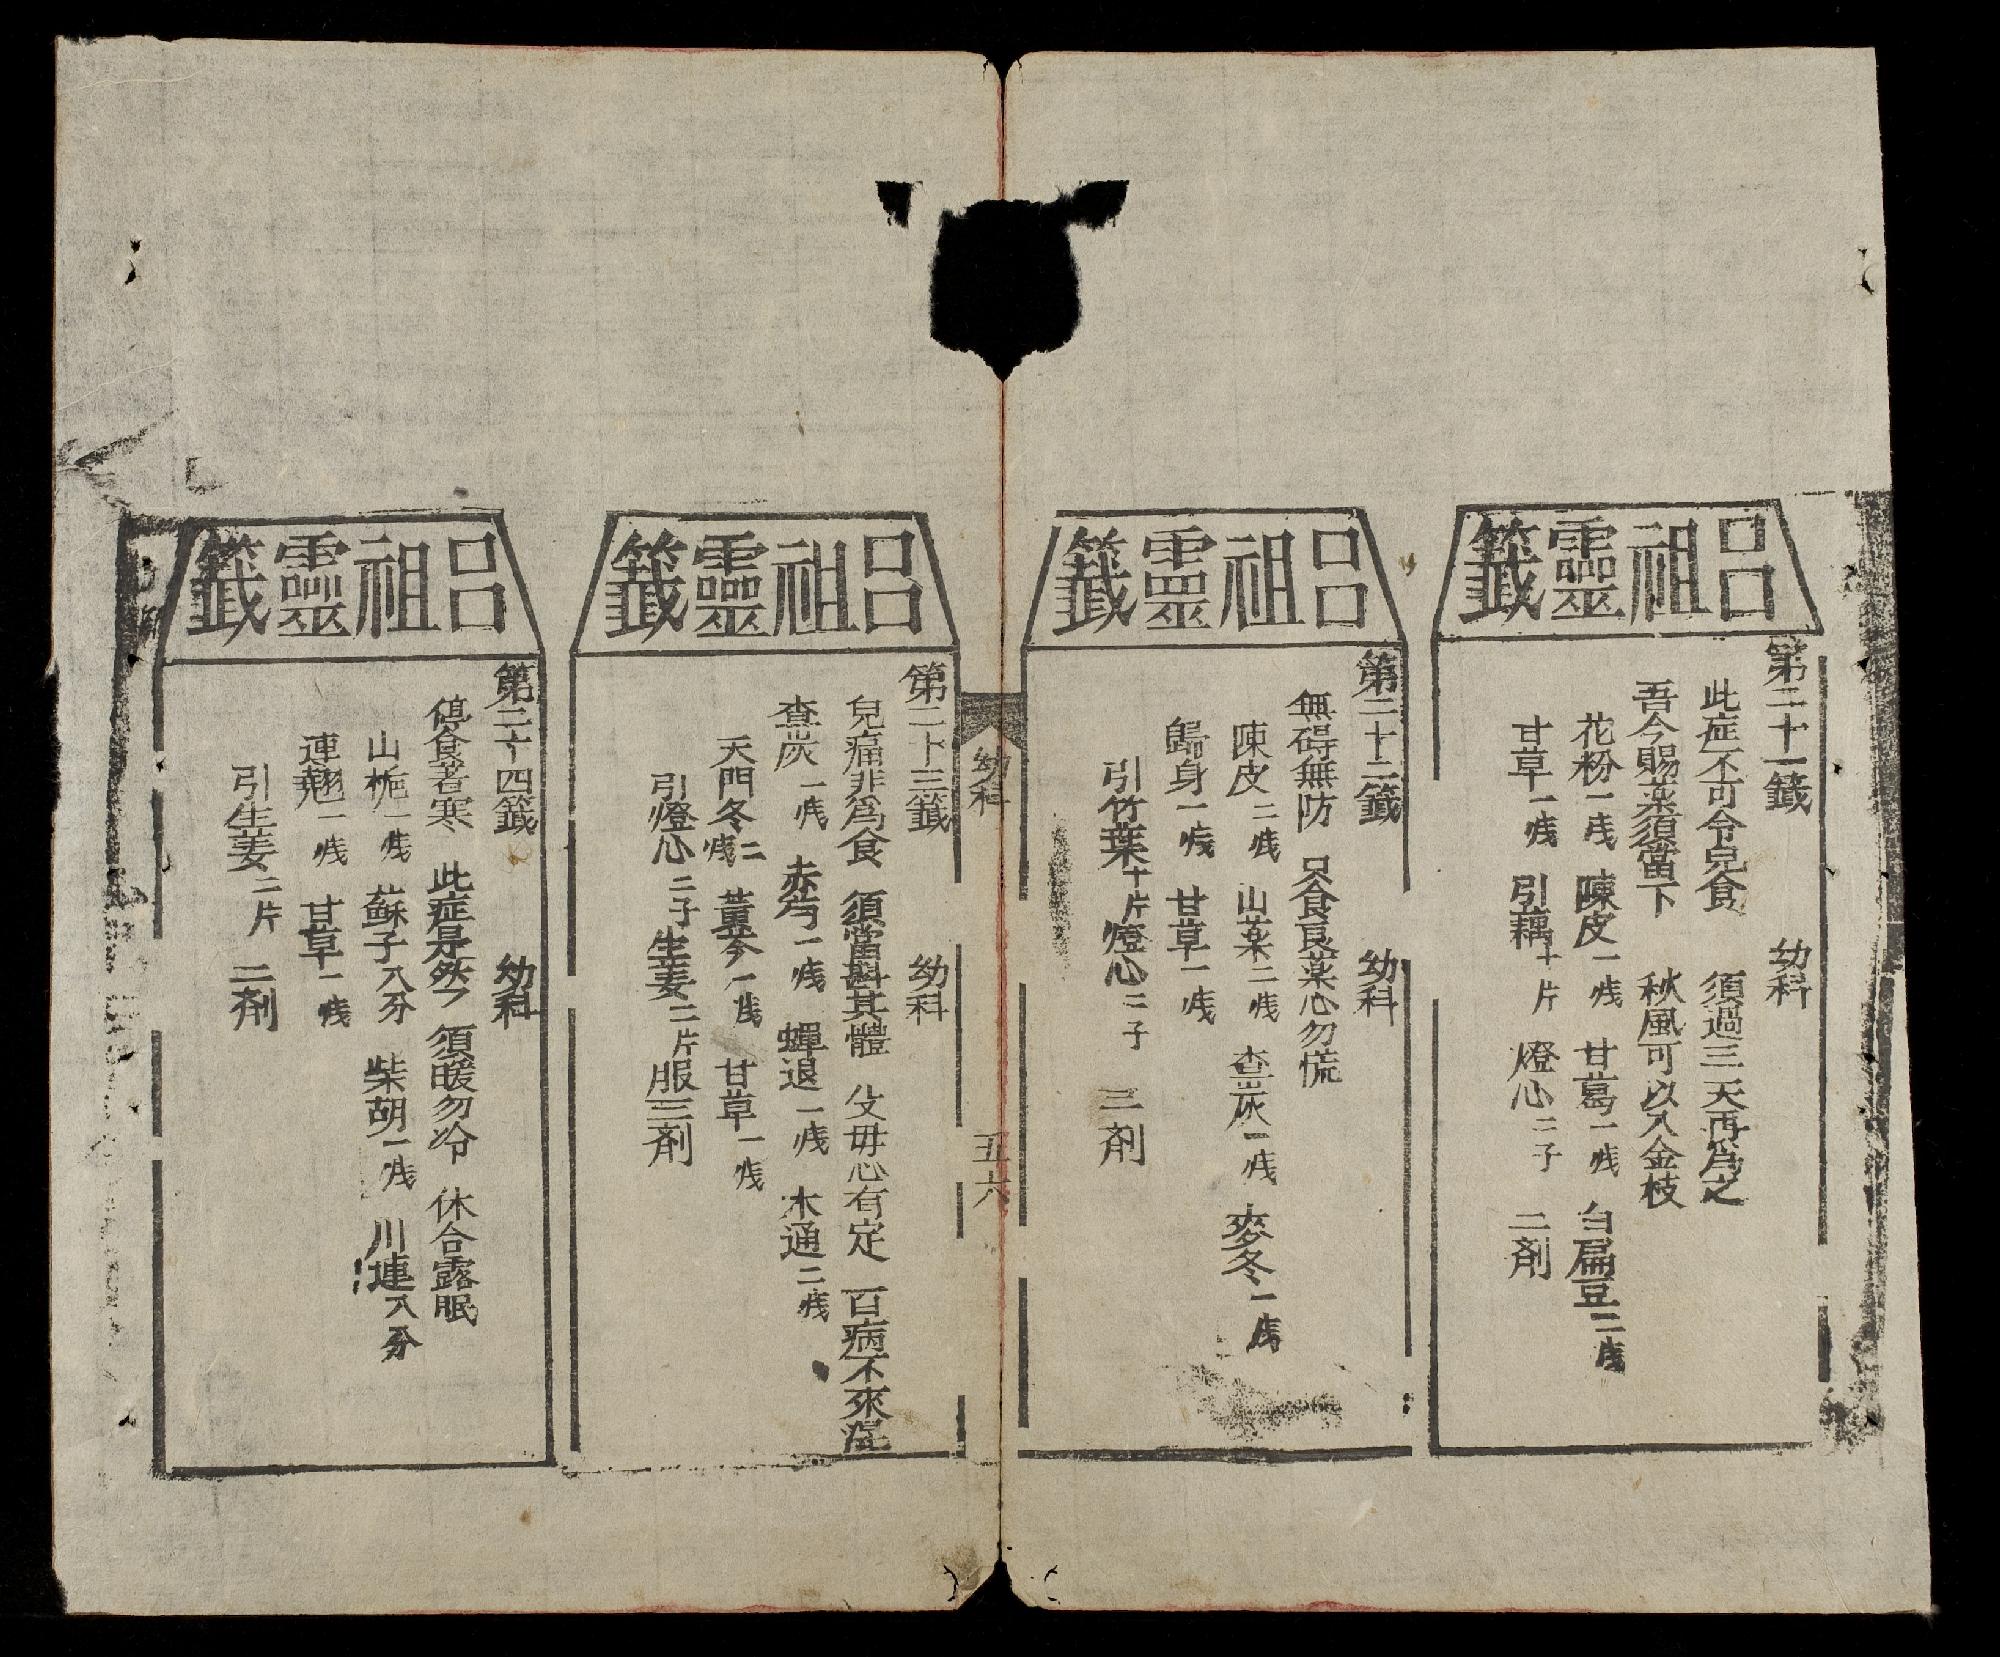 呂祖靈籤
第二十一籤 幼科
此症不可令兒食 須過三天再爲之
吾今賜藥須當下 秋風可以入金枝
花粉一戔 陳皮一戔 甘葛一戔 白扁豆二戔
甘草一戔 引藕十片 燈心二子 二剤
呂祖靈籤
第二十二籤 幼科
無碍無防 只食良藥心勿慌
陳皮二戔 山藥二戔 查炭一戔 麥冬一戔
歸身一戔 甘草一戔
引竹葉十片 燈心二子 三剤
幼科 五六
呂祖靈籤
第二十三籤 幼科
兒痛非爲食 須當斟其體 父毋心有定 百病不來
查炭一戔 赤芍一戔 蟬退一戔 木通二戔
天門冬二戔 黃芩一戔 甘草一戔
引燈心二子 生姜二片 服三剤
呂祖靈籤
第二十四籤 幼科
停食著寒 此症是然 須暖勿冷 休合露眠
山梔一戔 蘇子八分 柴胡一戔 川連八分
連翹一戔 甘草一戔
引生姜二片 二剤